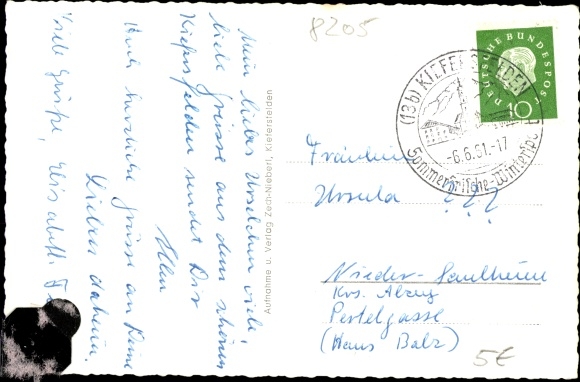 8205
Mein liebes Urselchen viele,
liebe Grüsse aus dem schönen
Kiefersfelden sendet Dir
Auch herzliche Grüsse an Deine
Lieben daheim.
Viele Grüße,
Aufnahme u. Verlag Zach-Niebert, Kiefersfelden
(13b) KIEFERSFELDEN
-6.6.61.-17
Sommerfrische-Wintersport
DEUTSCHE BUNDESPOST
10
Fräulein
Ursula ? ? ?
Nieder-Saulheim
Krs. Alzey
Pertelgasse
(Haus Balz)
5€